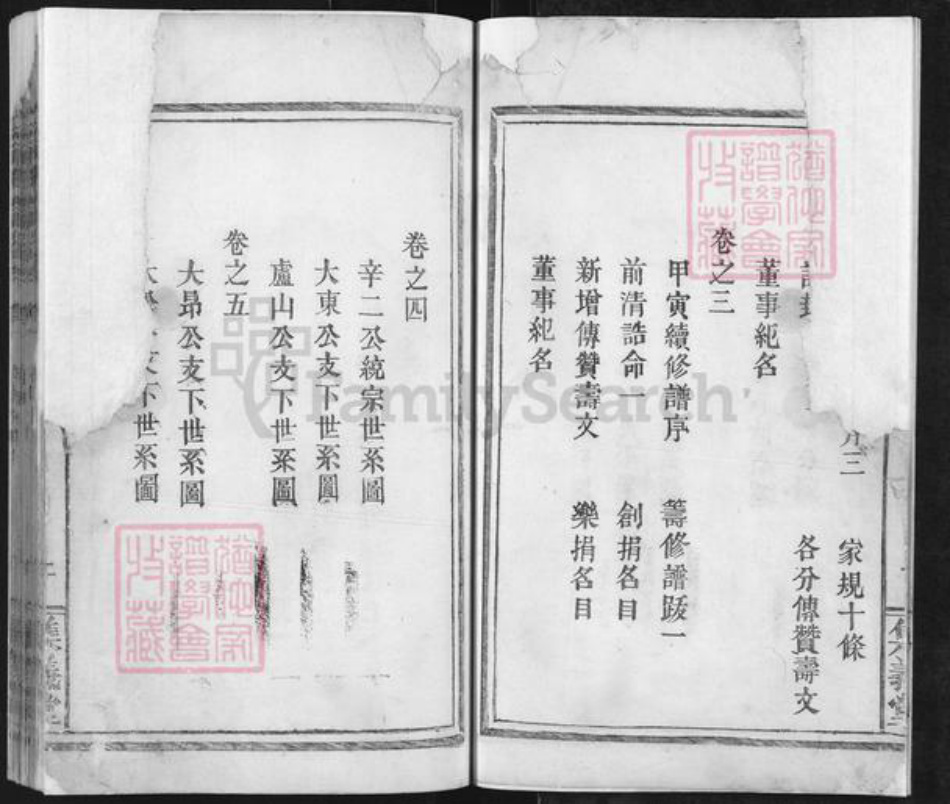 序三 家規十條
各分傳贊壽文
董事紀名
卷之三
甲寅續修譜序 籌修譜跋一
前清誥命一 創捐名目
新增傳贊壽文 樂捐名目
董事紀名
卷之四
辛二公統宗世系圖
大東公支下世系圖
廬山公支下世系圖
卷之五
大昻公支下世系圖
支下世系圖
FamilySearch
譜學會
收藏
譜學會
收藏